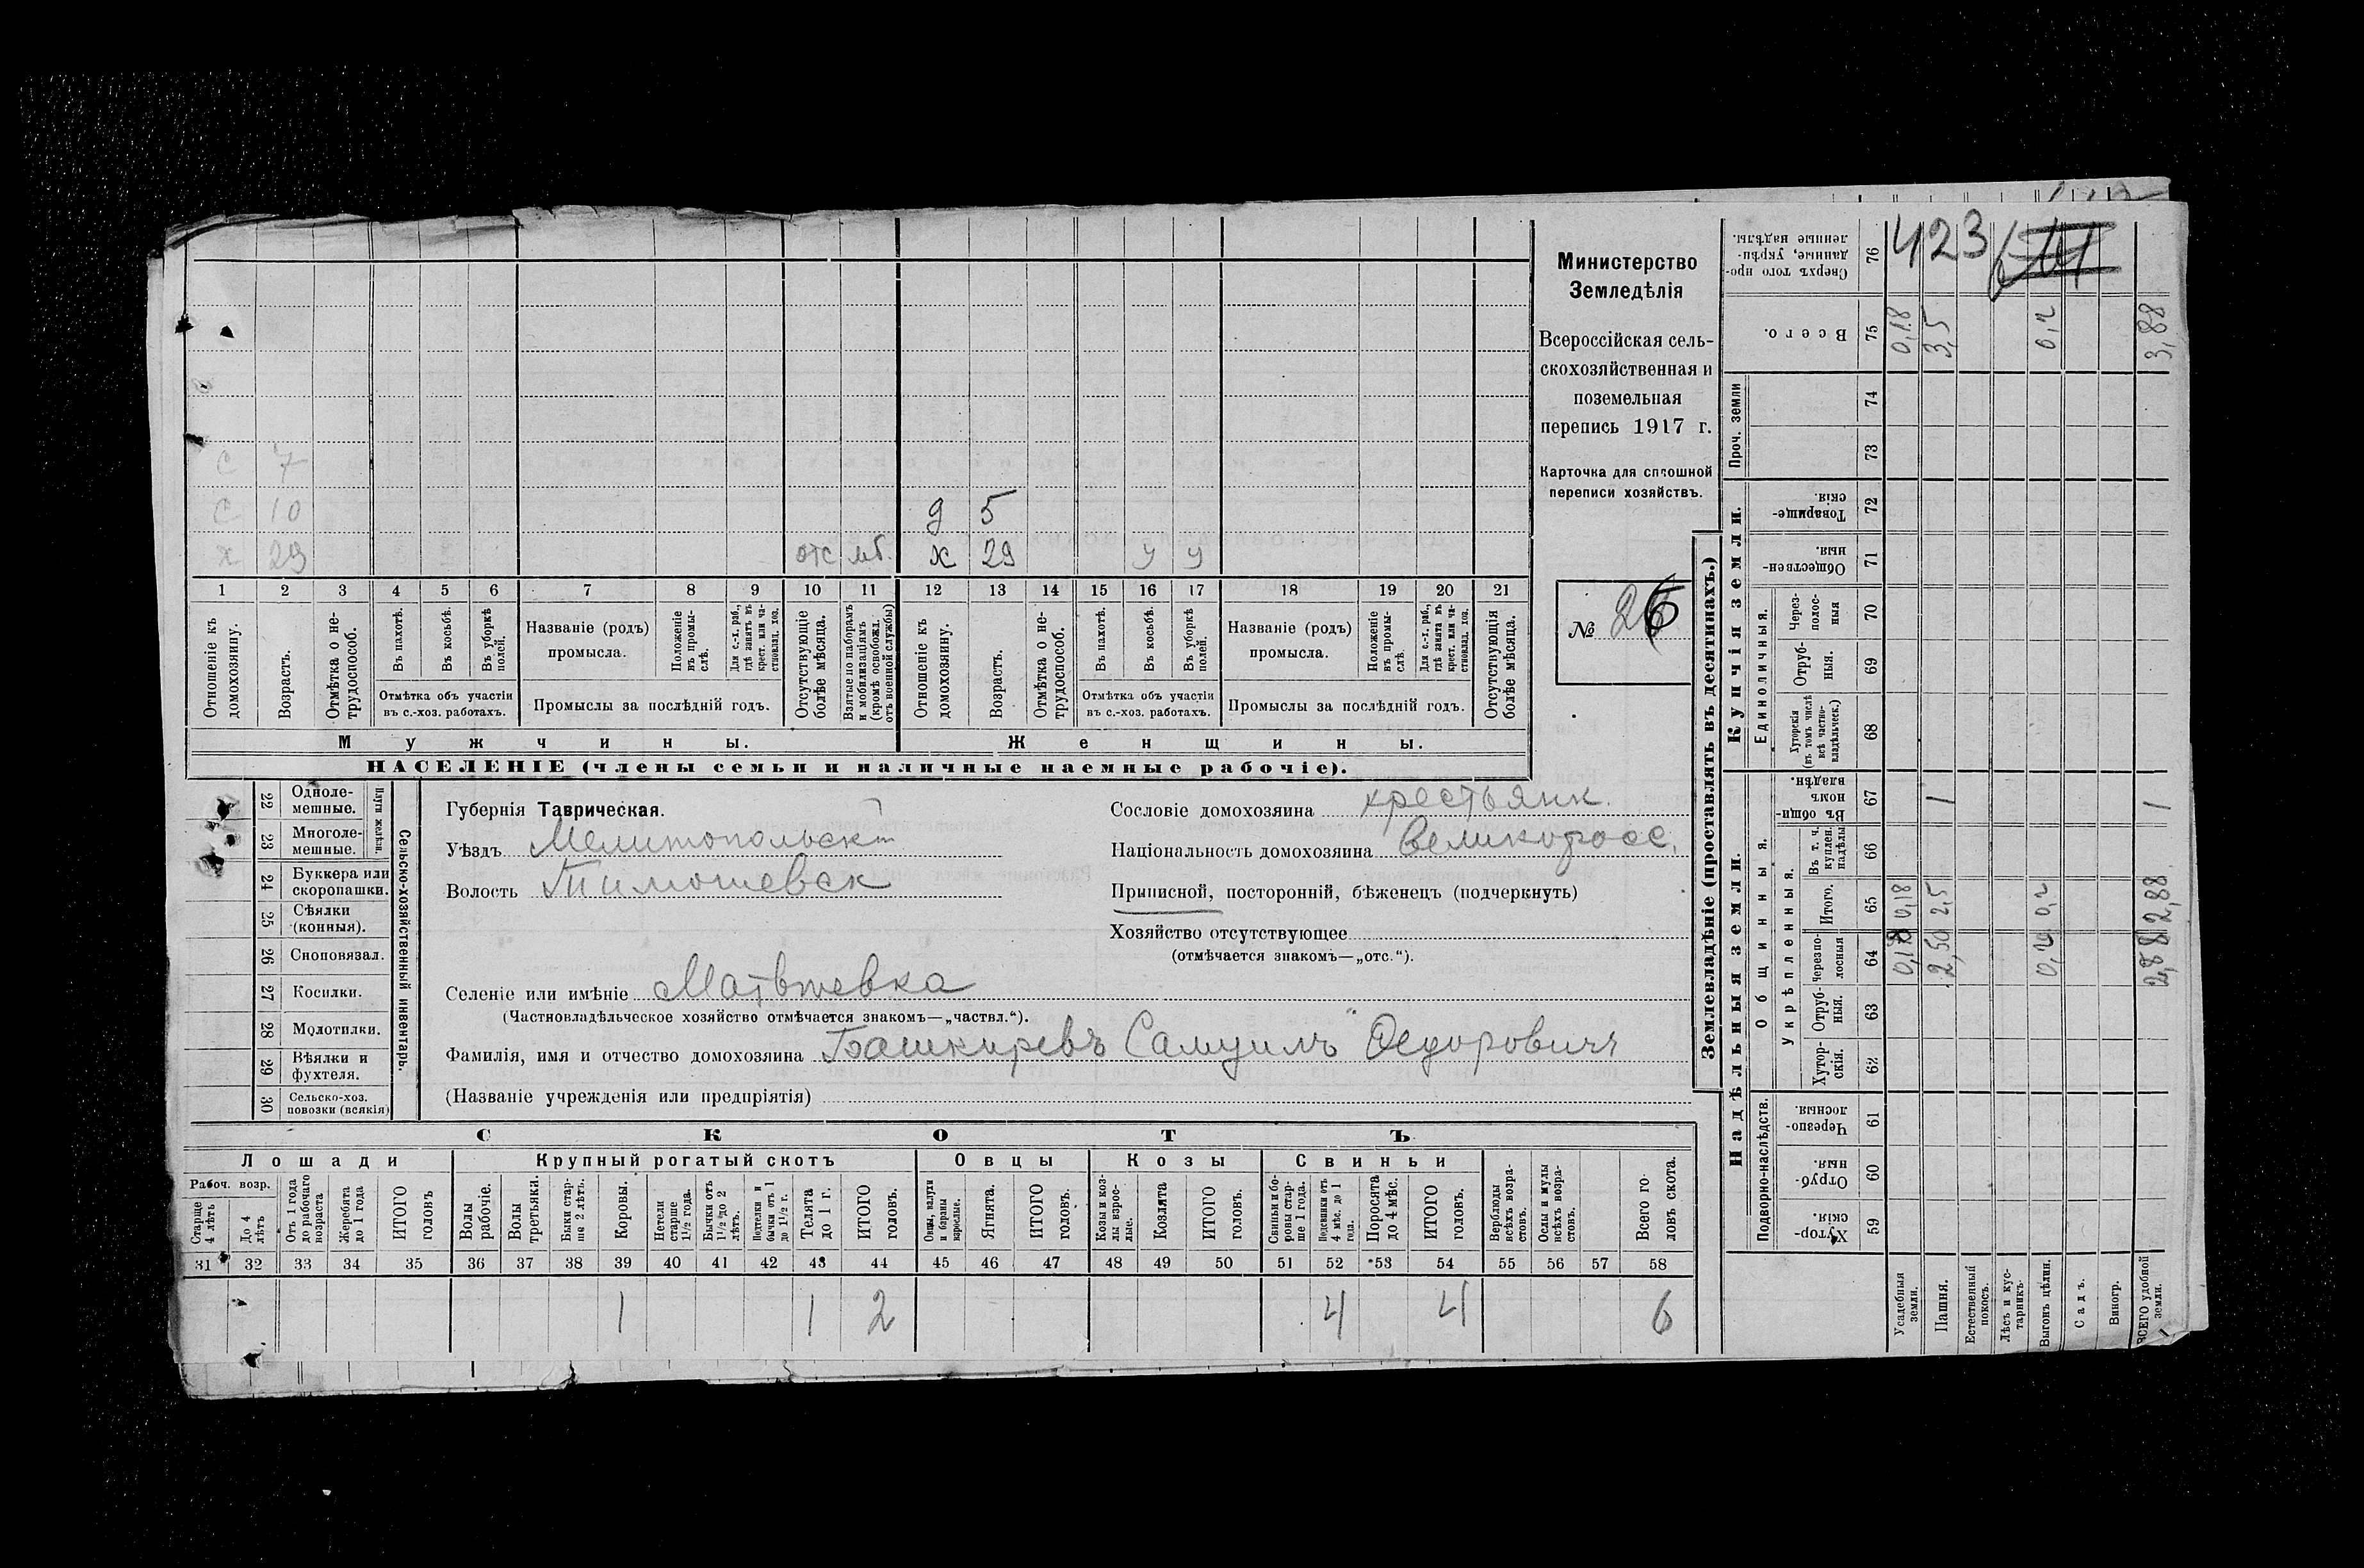 423
Министерство
Земледѣлія
Всероссійская сель-
скохозяйственная и
поземельная
перепись 1917 г.
Карточка для сплошной
переписи хозяйствъ.
№ 26
с 7
с 10 д 5
х 29 отс мб. х 29 у у
1 2 3 4 5 6 7 8 9 10 11 12 13 14 15 16 17 18 19 20 21
Отношеніе къ домохозяину.
Возрастъ.
Отмѣтка о не-трудоспособ.
Въ пахотѣ.
Въ косьбѣ.
Въ уборкѣ полей.
Отмѣтка объ участіи въ с.-хоз. работахъ.
Названіе (родъ) промысла.
Положеніе въ промы-слѣ.
Для с.-х. раб., гдѣ занятъ въ крест. или ча-стновлад. хоз.
Промыслы за послѣдній годъ.
Отсутствующіе болѣе мѣсяца.
Взятые по наборамъ и мобилизаціямъ (кромѣ освобожд. отъ военной службы)
Отношеніе къ домохозяину.
Возрастъ.
Отмѣтка о не-трудоспособ.
Въ пахотѣ.
Въ косьбѣ.
Въ уборкѣ полей.
Отмѣтка объ участіи въ с.-хоз. работахъ.
Названіе (родъ) промысла.
Положеніе въ промы-слѣ.
Для с.-х. раб., гдѣ занята въ крест. или ча-стновлад. хоз.
Промыслы за послѣдній годъ.
Отсутствующія болѣе мѣсяца.
Мужчины. Женщины.
НАСЕЛЕНІЕ (члены семьи и наличные наемные рабочіе).
22 Одноле-мешные.
23 Многоле-мешные.
Плуги желѣзн.
24 Буккера или скоропашки.
25 Сѣялки (конныя).
26 Сноповязал.
27 Косилки.
28 Молотилки.
29 Вѣялки и фухтеля.
30 Сельско-хоз. повозки (всякія)
Сельско-хозяйственный инвентарь.
Губернія Таврическая.
Уѣздъ Мелитопольскій
Волость Тимошевск
Сословіе домохозяина крестьянк.
Національность домохозяина Великоросс.
Приписной, посторонній, бѣженецъ (подчеркнуть)
Хозяйство отсутствующее
(отмѣчается знакомъ—„отс.“).
Селеніе или имѣніе Матвѣевка
(Частновладѣльческое хозяйство отмѣчается знакомъ—„частвл.“).
Фамилія, имя и отчество домохозяина Башкиревъ Самуилъ Ѳедоровичъ
(Названіе учрежденія или предпріятія)
СКОТЪ
Лошади Крупный рогатый скотъ Овцы Козы Свиньи
Рабоч. возр.
Старше 4 лѣтъ
До 4 лѣтъ
Отъ 1 года до рабочаго возраста
Жеребята до 1 года
ИТОГО головъ
Волы рабочіе.
Волы третьяки.
Быки стар-ше 2 лѣтъ.
Коровы.
Нетели старше 1½ года.
Бычки отъ 1½ до 2 лѣтъ.
Подтелки и бычки отъ 1 до 1½ г.
Телята до 1 г.
ИТОГО головъ.
Овцы, валухи и бараны взрослые.
Ягнята.
ИТОГО головъ.
Козы и коз-лы взрос-лые.
Козлята
ИТОГО головъ.
Свиньи и бо-ровы стар-ше 1 года.
Подсвинки отъ 4 мѣс. до 1 года.
Поросята до 4 мѣс.
ИТОГО головъ.
Верблюды всѣхъ возра-стовъ.
Ослы и мулы всѣхъ возра-стовъ.
Всего го-ловъ скота.
31 32 33 34 35 36 37 38 39 40 41 42 43 44 45 46 47 48 49 50 51 52 53 54 55 56 57 58
1 1 2 4 4 6
Землевладѣніе (проставлять въ десятинахъ.)
Надѣльныя земли. Купчія земли. Проч. земли
Подворно-наслѣдств.
Общинныя.
Укрѣпленныя.
Единоличныя.
59 Хутор-скія.
60 Отруб-ныя.
61 Черезпо-лосныя.
62 Хутор-скія.
63 Отруб-ныя.
64 Черезпо-лосныя 0,18 2,50 0,2 2,88
65 Итого. 0,18 2,5 0,2 2,88
66 Въ т. ч. куплен. надѣлы
67 Въ общи-номъ владѣн. 1 1
68 Хуторскія (въ томъ числѣ всѣ частно-владѣльческ.)
69 Отруб-ныя.
70 Через-полос-ныя
71 Обществен-ныя.
72 Товарище-скія.
73
74
75 Всего. 0,18 3,5 0,2 3,88
76 Сверхъ того про-данные, укрѣп-ленные надѣлы.
Усадебныя земли.
Пашня.
Естественный покосъ.
Лѣсъ и кус-тарникъ
Выгонъ цѣлин.
Садъ.
Виногр.
ВСЕГО удобной земли.